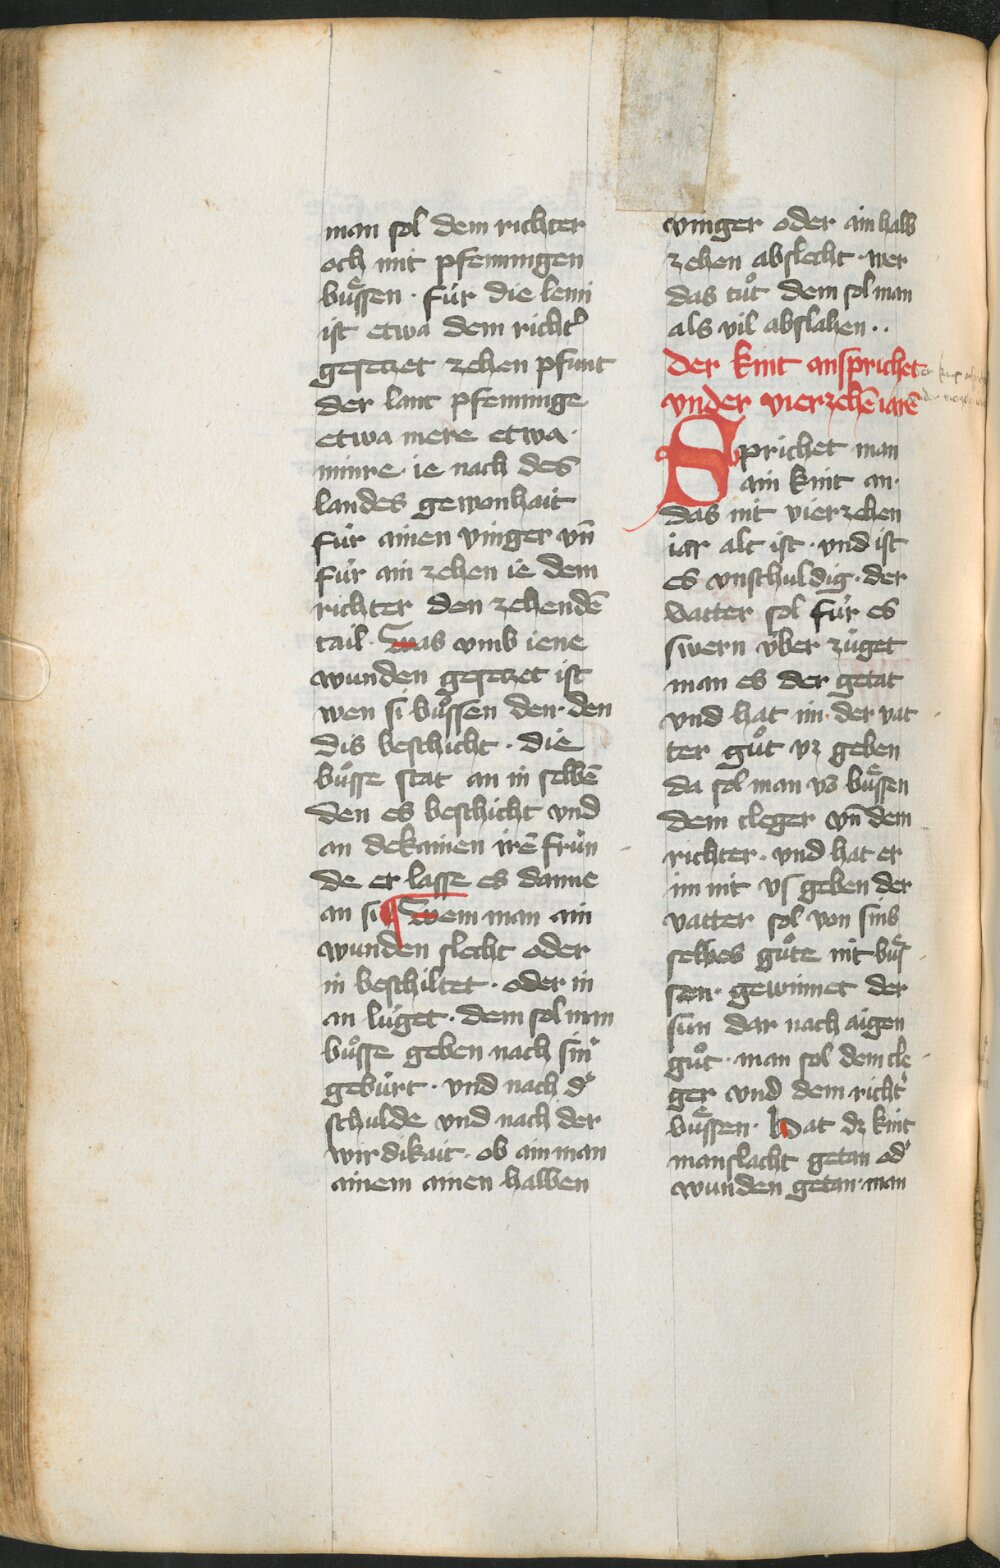 man sol dem richter
och mit pfenningen
buͤssen · fúr die lemi
ist etwa dem richtͥ
gesetzet · zehen pfunt
der lant pfenninge
etwa mere etwa ·
minre · ie nach des
landes gewonhait
fúr ainen vinger vn̄
fúr ain zehen ie dem
richter den zehendē
tail · Swas vmb iene
wunden gesetzet ist
wen si buͤssen den · den
dis beschicht · die
buͦsse stat an in selbē
den es beschicht vnd
an dekainen irē frún
de er lasse es danne
an si ¶ Swem man ain
wunden slecht oder
in beschiltet · oder in
an lúget · dem sol man
buͦsse geben nach sinͥ
gebúrt · vnd nach dͥ
schulde vnd nach der
wirdikait · ob ain man
ainem ainen halben
vinger oder ain halb
zehen abslecht · wer
das tuͦt dem sol man
als vil abslahen ··
der kint ansprichet
vnder vierzehē iarē
Sprichet man
ain kint an ·
das nit vierzehen
iar alt ist · vnd ist
es vnschuldig · der
vatter sol fúr es
swern v́ber zúget
man es der getat
vnd hat im · der vat
ter guͦt vz geben
da sol man vs buͤssen
dem cleger vn̄ dem
richter · vnd hat er
im nit vs geben der
vatter sol von sins
selbes guͦte nit buͤs
sen · gewinnet der
sun dar nach aigen
guͦt · man sol dem cle
ger vnd dem richtͥ
buͤssen · Hat dz kint
manslacht getan odͥ
wunden getan · man